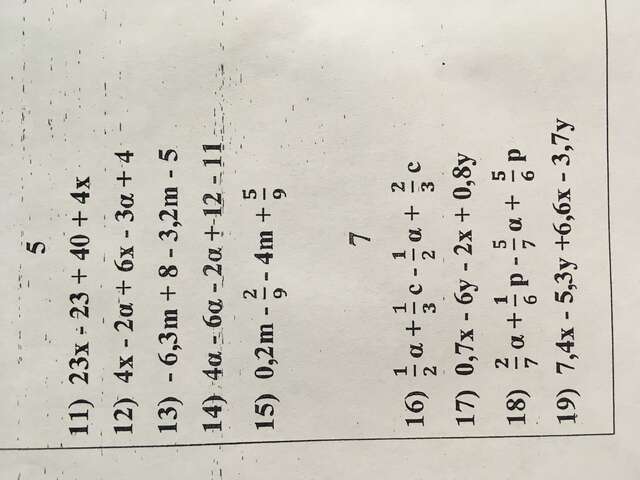 5
11) 23x - 23 + 40 + 4x
12) 4x - 2a + 6x - 3a + 4
13) - 6,3m + 8 - 3,2m - 5
14) 4a - 6a - 2a + 12 - 11
15) 0,2m - 2/9 - 4m + 5/9
7
16) 1/2 a + 1/3 c - 1/2 a + 2/3 c
17) 0,7x - 6y - 2x + 0,8y
18) 2/7 a + 1/6 p - 5/7 a + 5/6 p
19) 7,4x - 5,3y +6,6x - 3,7y